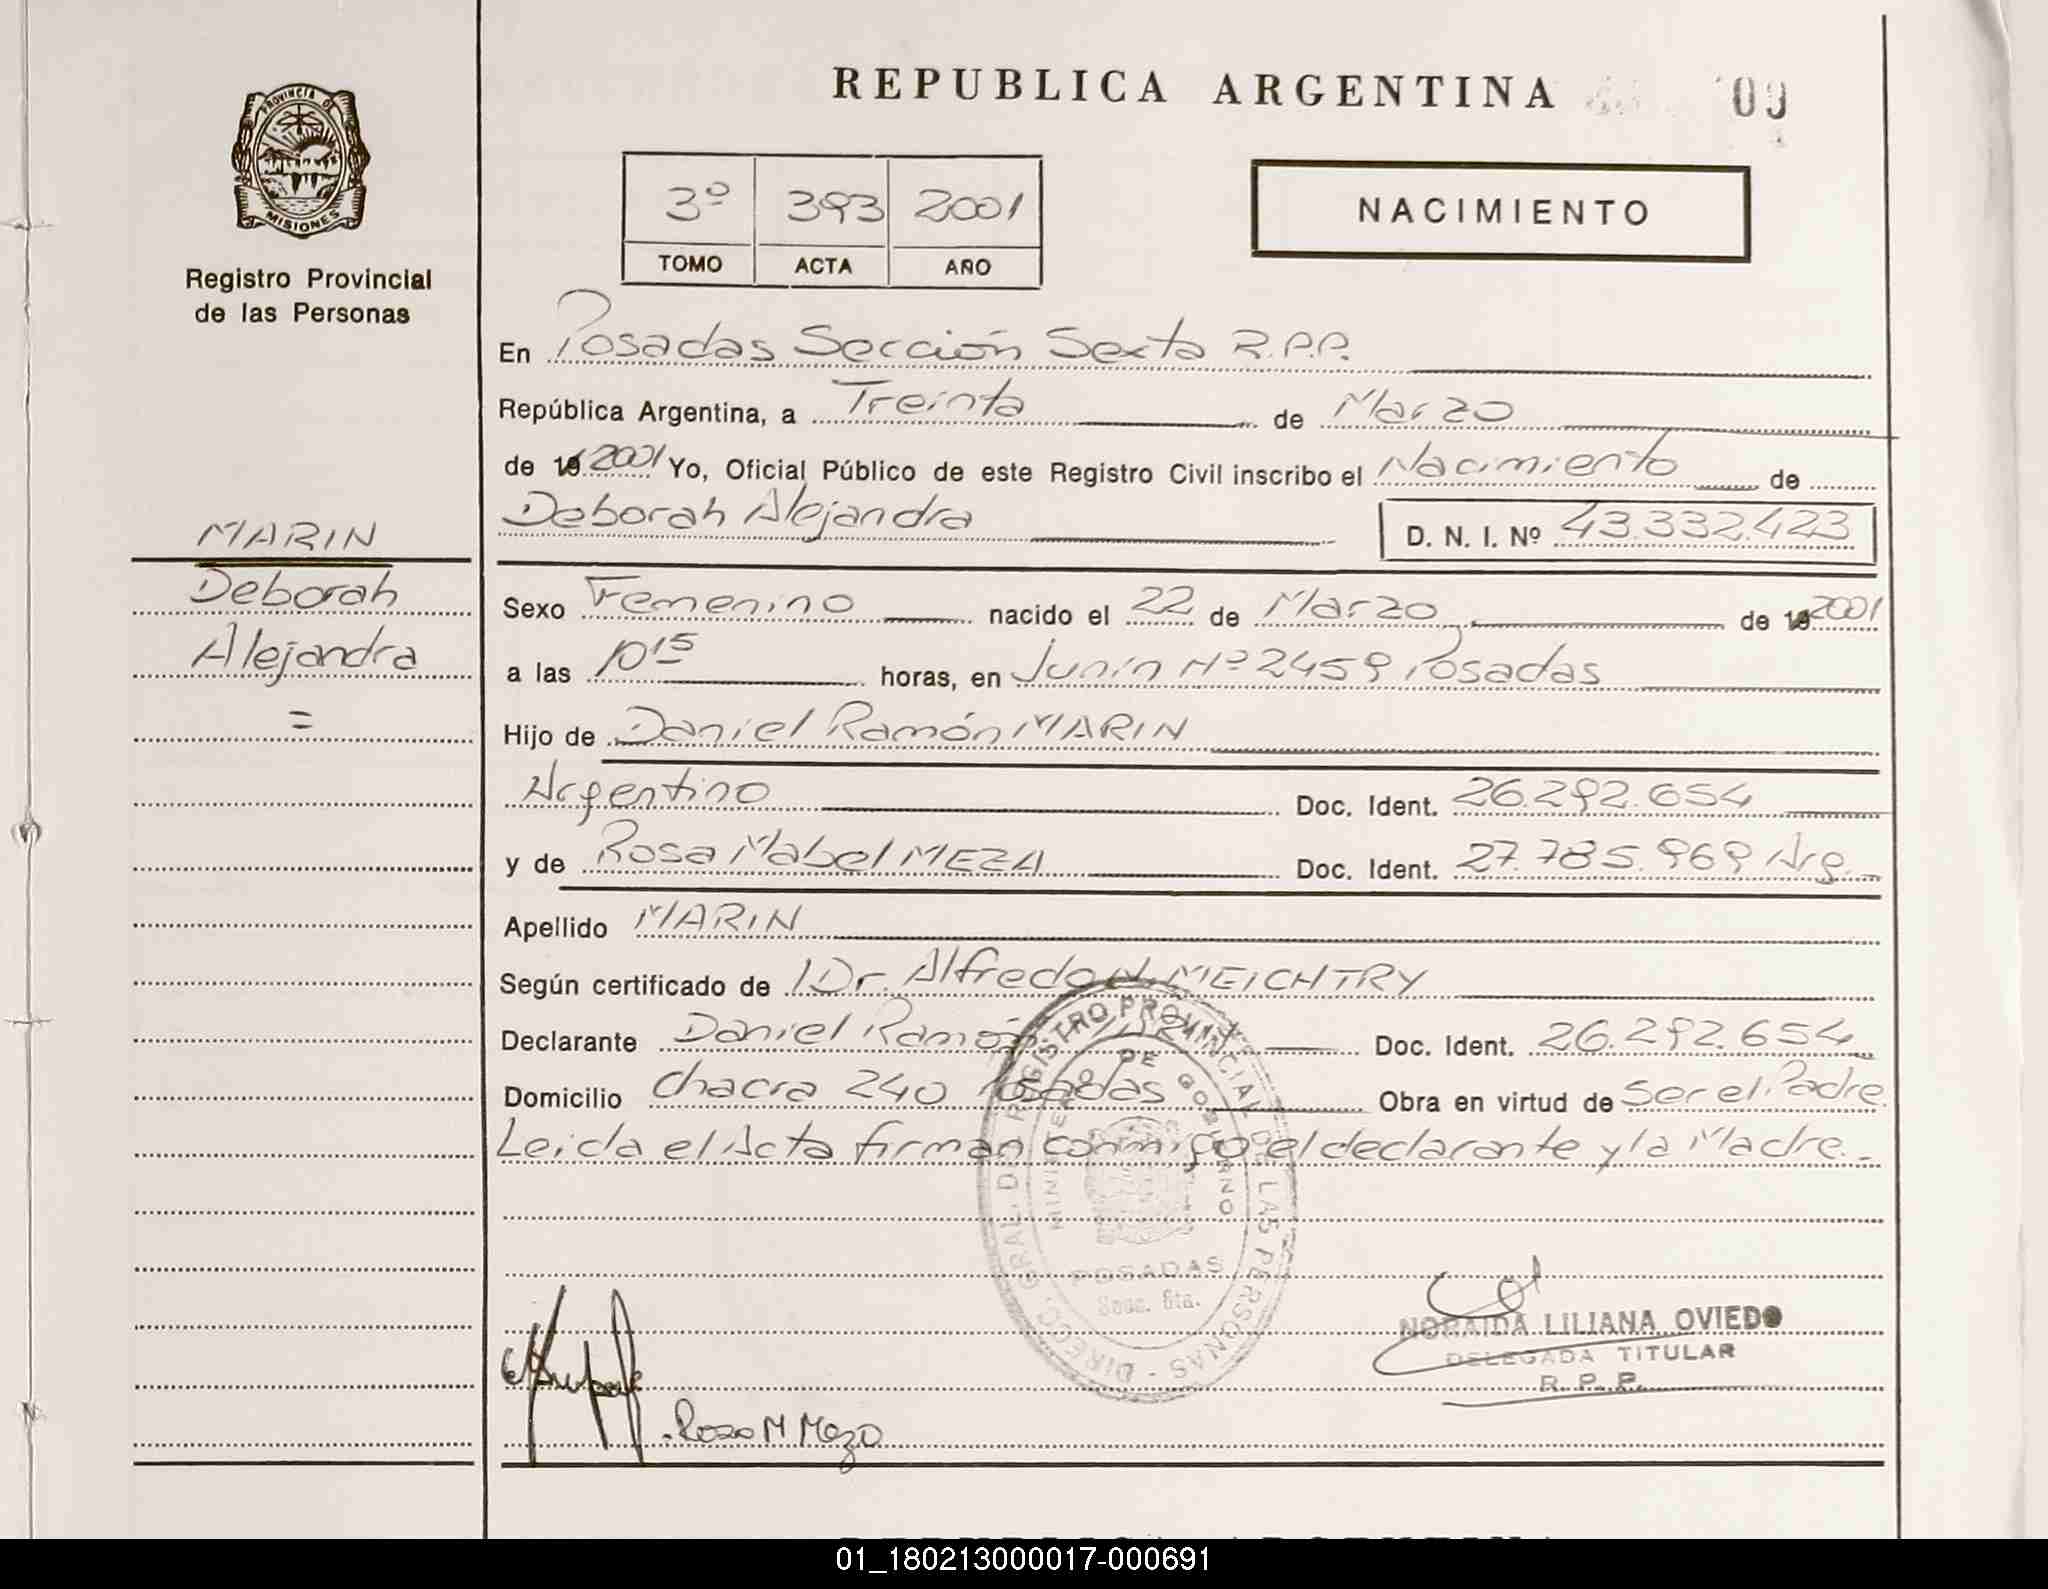 REPUBLICA ARGENTINA
09
PROVINCIA DE
MISIONES
Registro Provincial
de las Personas
3º 393 2001
TOMO ACTA AÑO
NACIMIENTO
En Posadas Sección Sexta R.P.P.
República Argentina, a Treinta de Marzo
de 19 2001 Yo, Oficial Público de este Registro Civil inscribo el Nacimiento de
Deborah Alejandra D. N. I. Nº 43.332.423
MARIN
Deborah
Alejandra
=
Sexo Femenino nacido el 22 de Marzo de 19 2001
a las 10 15 horas, en Junín Nº 2459 Posadas
Hijo de Daniel Ramón MARIN
Argentino Doc. Ident. 26.292.654
y de Rosa Mabel MEZA Doc. Ident. 27.785.969 Arg.
Apellido MARIN
Según certificado de Dr. Alfredo N. MEICHTRY
Declarante Daniel Ramón MARIN Doc. Ident. 26.292.654
Domicilio chacra 240 Posadas Obra en virtud de Ser el Padre
Leida el Acta firman conmigo el declarante y la Madre.-
DIRECC. GRAL. DEL REGISTRO PROVINCIAL DE LAS PERSONAS -
MINISTERIO DE GOBIERNO
POSADAS
Secc. 6ta.
NORAIDA LILIANA OVIEDO
DELEGADA TITULAR
R.P.P.
Rosa M Meza
01_180213000017-000691